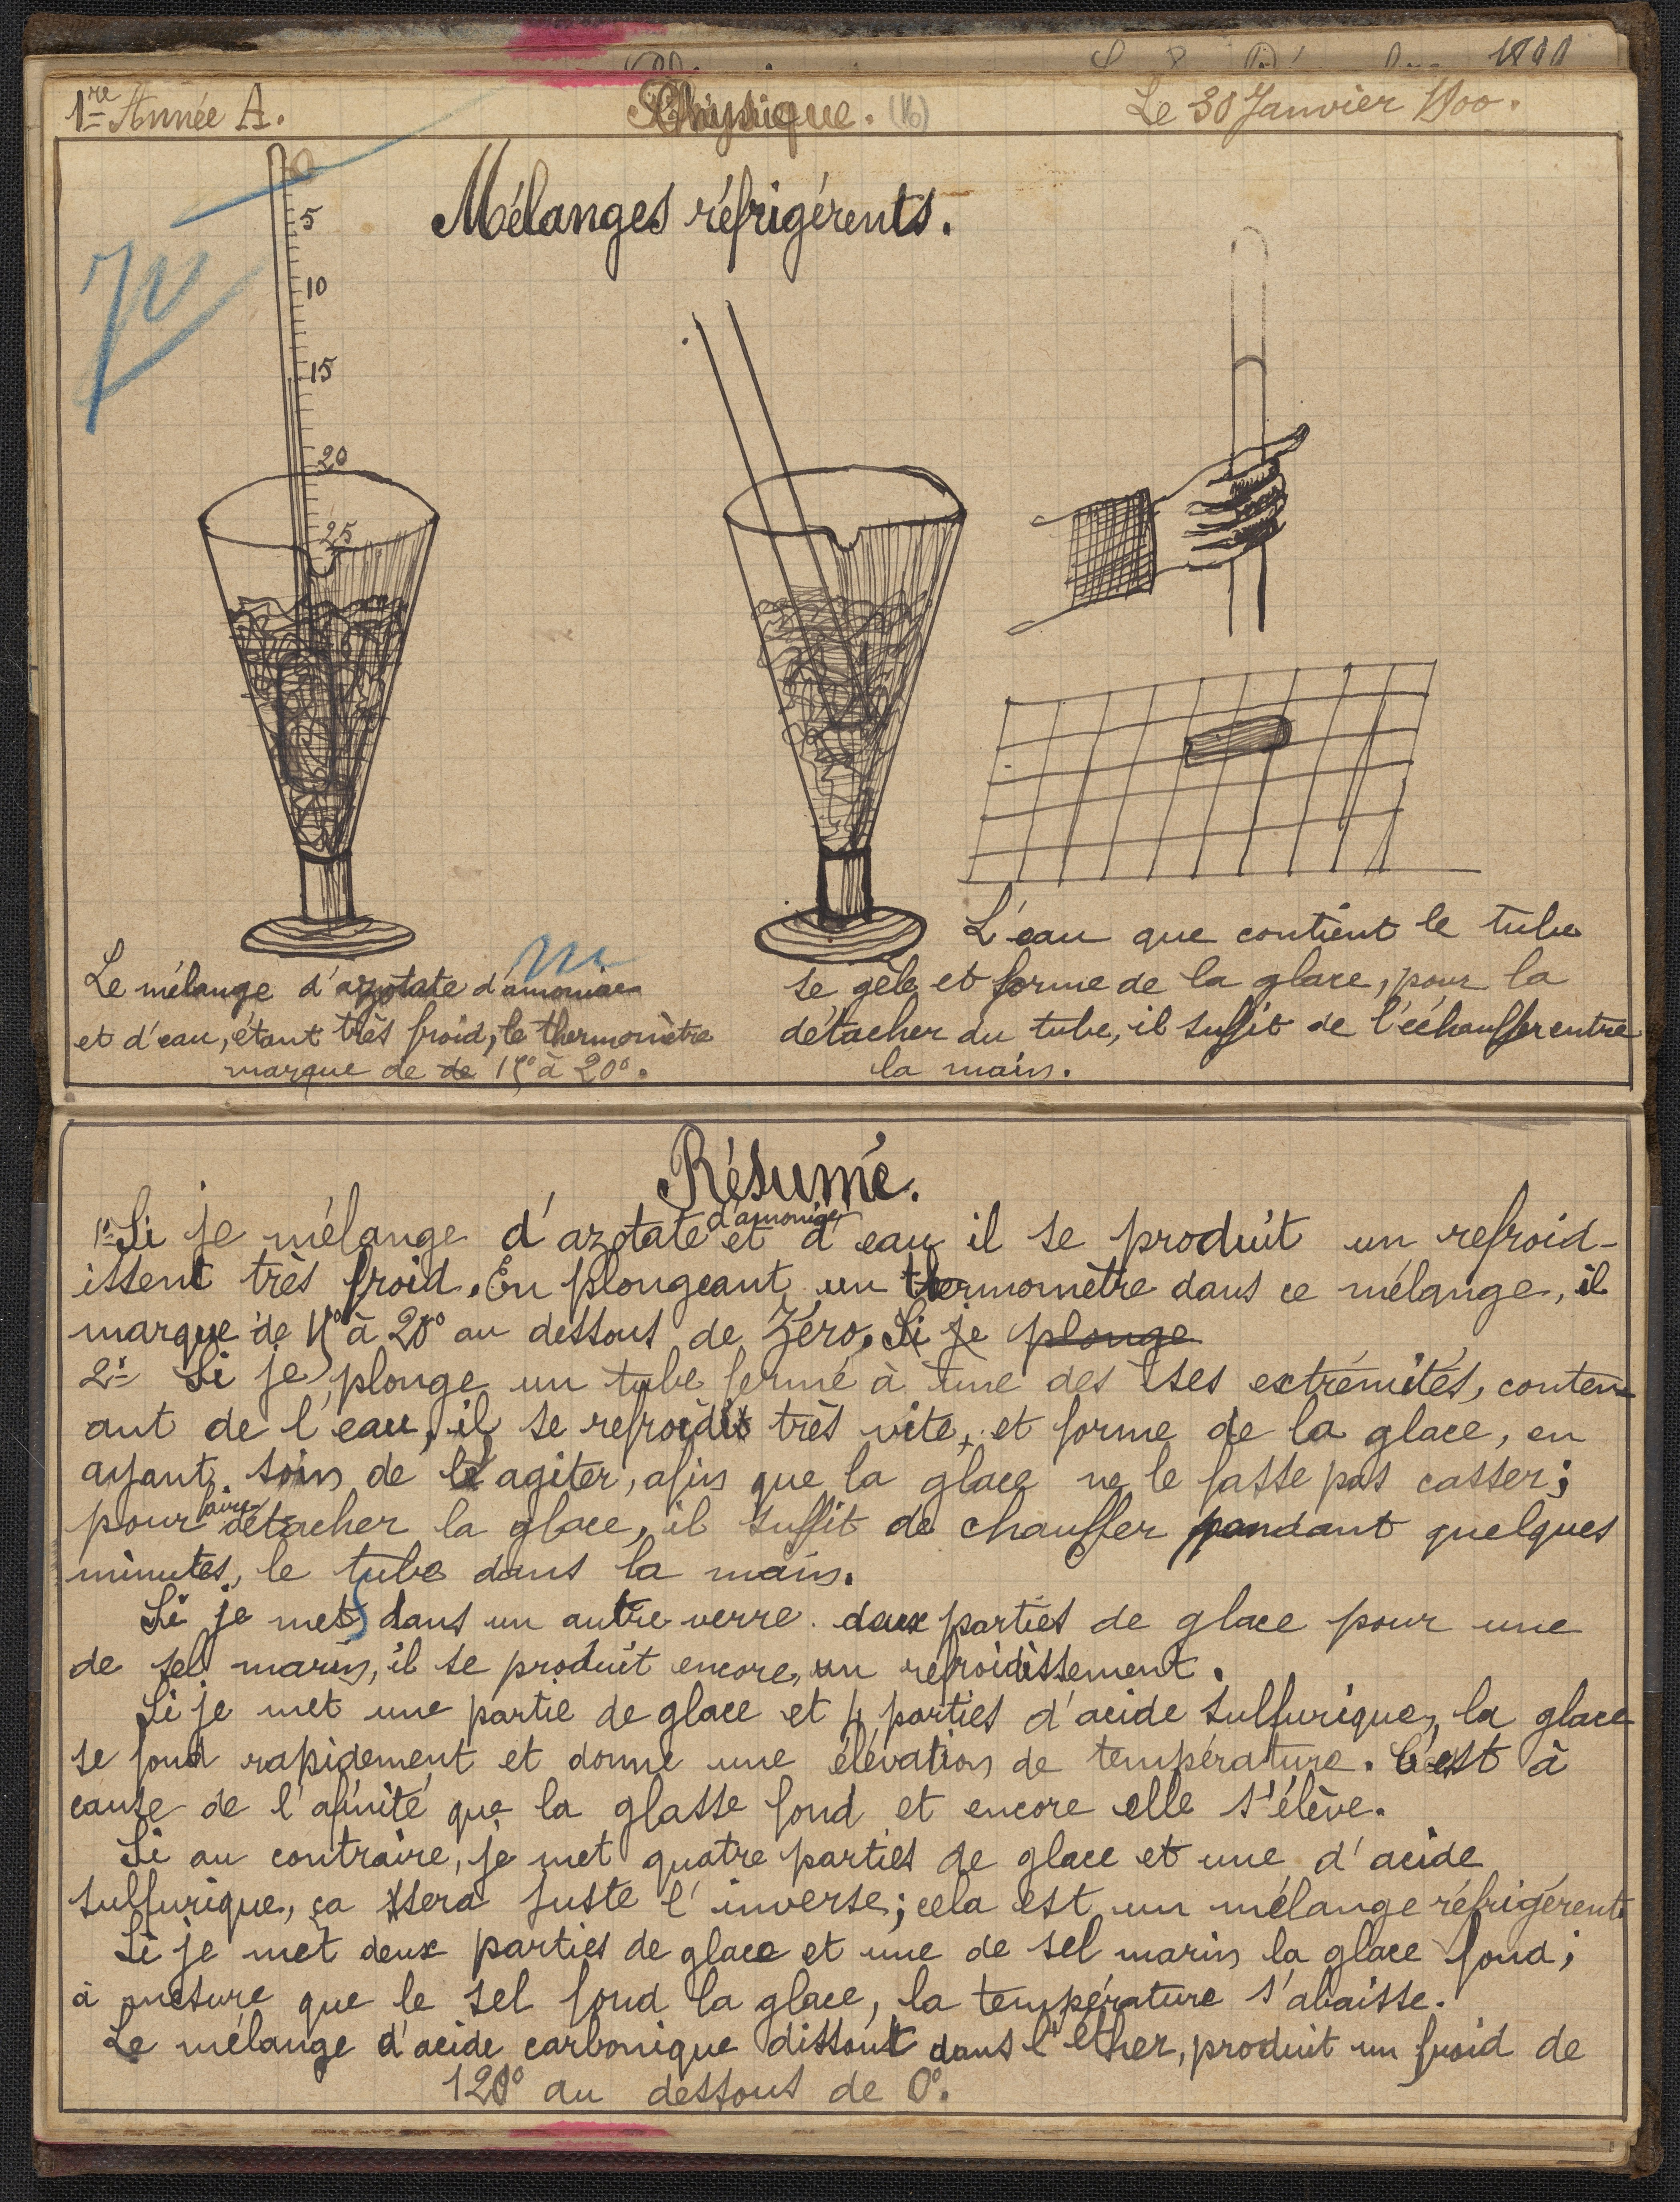 1re Année A.
Physique. (16)
Le 30 Janvier 1900.
Mélanges réfrigérents.
0
5
10
15
20
25
Le mélange d'azotate d'amoniac
et d'eau, étant très froid, le thermomètre
marque de de 15° à 20°.
L'eau que contient le tube
se gèle et forme de la glace, pour la
détacher du tube, il suffit de l'échauffer entre
la main.
Résumé.
1° Si je mélange d'azotate d'amoniac et d'eau il se produit un refroid-
issent très froid. En plongeant un thermomètre dans ce mélange, il
marque de 15° à 20° au dessous de Zéro. Si je plonge
2° Si je plonge un tube fermé à une des ses extrémités, conten-
ant de l'eau, il se refroidit très vite, et forme de la glace, en
ayant soin de l'agiter, afin que la glace ne le fasse pas casser;
pour détacher la glace, il suffit de chauffer pendant quelques
minutes, le tube dans la main.
Si je met dans un autre verre deux parties de glace pour une
de sel marin, il se produit encore, un refroidissement.
Si je met une partie de glace et 4 parties d'acide sulfurique, la glace
se fond rapidement et donne une élévation de température. C'est à
cause de l'afinité que la glasse fond et encore elle s'élève.
Si au contraire, je met quatre parties de glace et une d'acide
sulfurique, ça sera juste l'inverse; cela est un mélange réfrigérent
Si je met deux parties de glace et une de sel marin la glace fond;
à mesure que le sel fond la glace, la température s'abaisse.
Le mélange d'acide carbonique dissout dans l'éther, produit un froid de
120° au dessous de 0°.